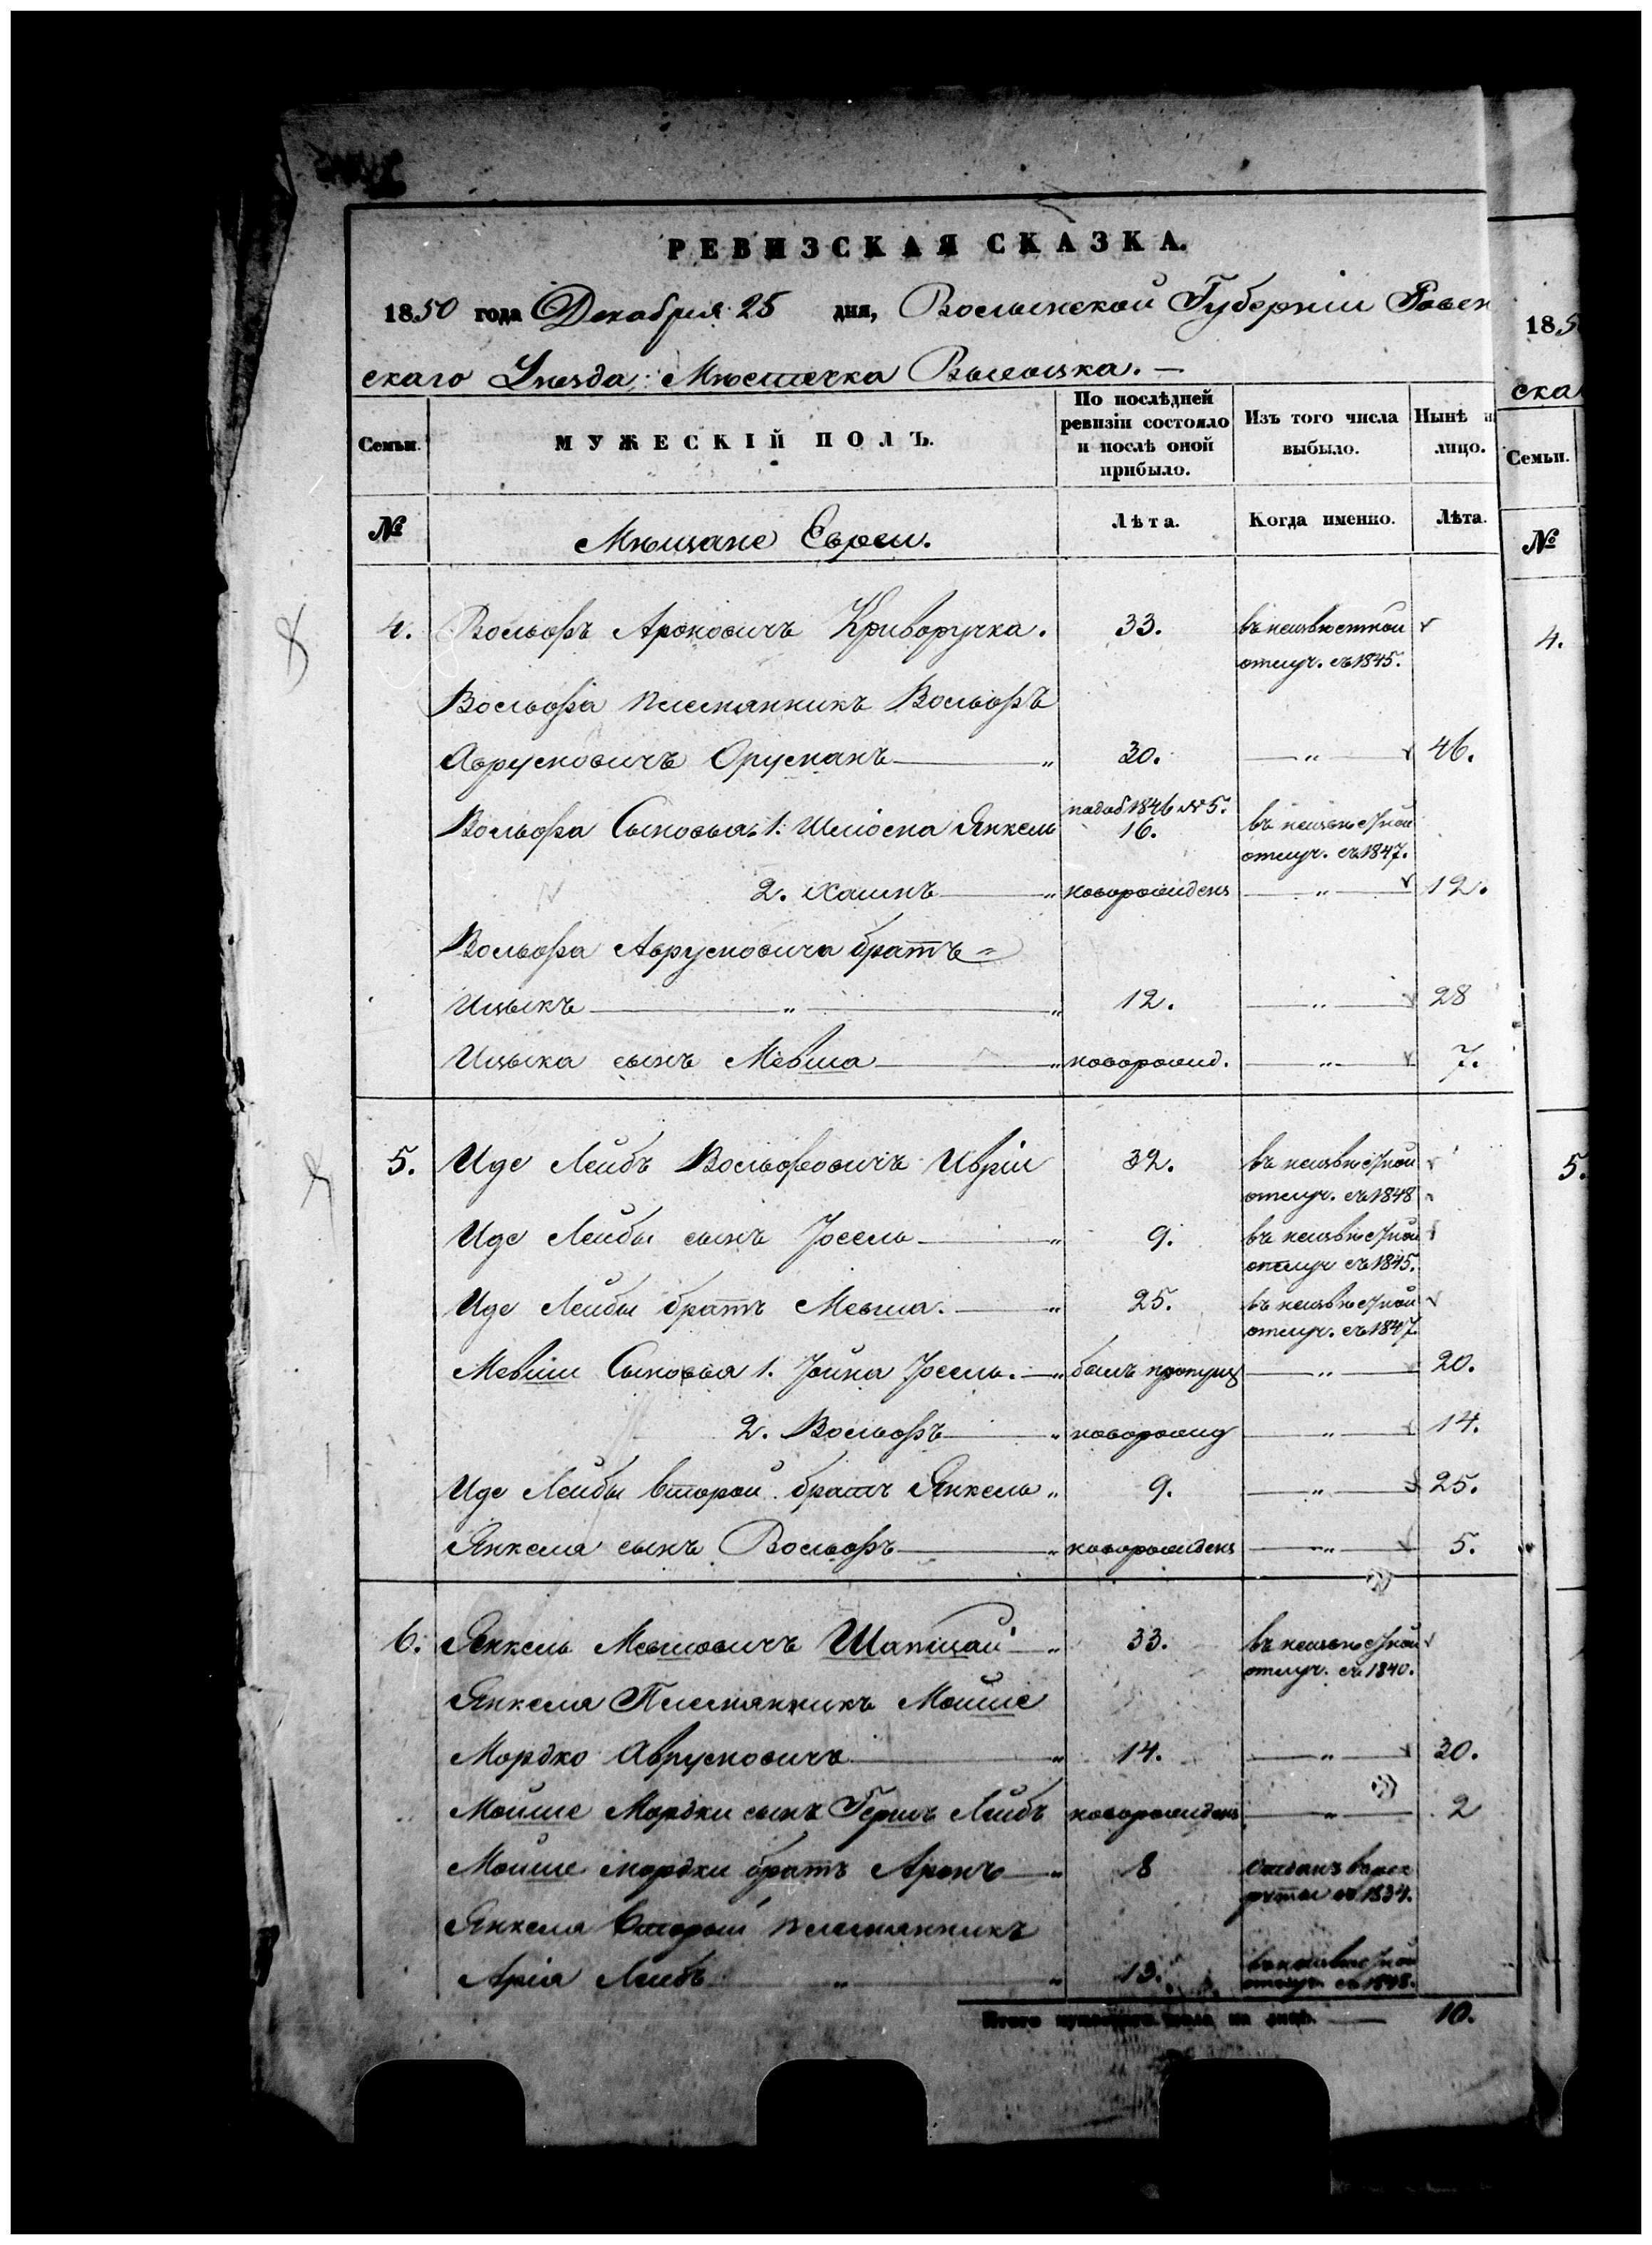 РЕВИЗСКАЯ СКАЗКА.
1850 года Декабря 25 дня, Волынской Губерніи Ровен
скаго Уѣзда: Мѣстечка Высоцка. —
Семьи.
МУЖЕСКІЙ ПОЛЪ.
По послѣдней ревизіи состояло и послѣ оной прибыло.
Изъ того числа выбыло.
Нынѣ н
лицо.
№
Мѣщане Евреи.
Лѣта.
Когда именно.
Лѣта.
4. Вольфъ Ароновичъ Криворучка. 33. въ неизвѣстной
отлуч. съ 1845.
Вольфа племянникъ Вольфъ
Аврумовичъ Фруманъ — " 30. — " — 46.
Вольфа Сыновья 1. Шліома Янкель 16. въ неизвѣстной
отлуч. съ 1847.
2. Хаимъ — " новорожденъ — " — 12.
Вольфа Аврумовича братъ
Ицыкъ — " — " 12. — " — 28
Ицыка сынъ Мевша — " новорожд. — " — 7.
5. Иде Лейбъ Вольфовичъ Иврій 32. въ неизвѣстной
отлуч. съ 1848
Иде Лейбы сынъ Іосель — " 9. въ неизвѣстной
отлуч съ 1845.
Иде Лейбы братъ Мевша. — " 25. въ неизвѣстной
отлуч. съ 1847.
Мевши Сыновья 1. Іойна Іосель. — " былъ пропущ — " — 20.
2. Вольфъ — " новорожд — " — 14.
Иде Лейбы второй братъ Янкель " 9. — " — 25.
Янкеля сынъ Вольфъ — " новорожденъ — " — 5.
6. Янкель Мевшовичъ Шапшай — " 33. въ неизвѣстной
отлуч. съ 1840.
Янкеля Племянникъ Мошше
Мордко Аврумовичъ — " 14. — " — 30.
Мошше Мордки сынъ Гершъ Лейбъ новорожденъ — " — 2
Мошше мордки братъ Аронъ — " 8 отданъ въ рек
руты въ 1834.
Янкеля Второй племянникъ
Арія Лейбъ " " 13. въ неизвѣстной
отлуч. съ 1848.
Итого мужескаго пола на лицо. — 10.
185
ска
Семьи.
№
4.
5.